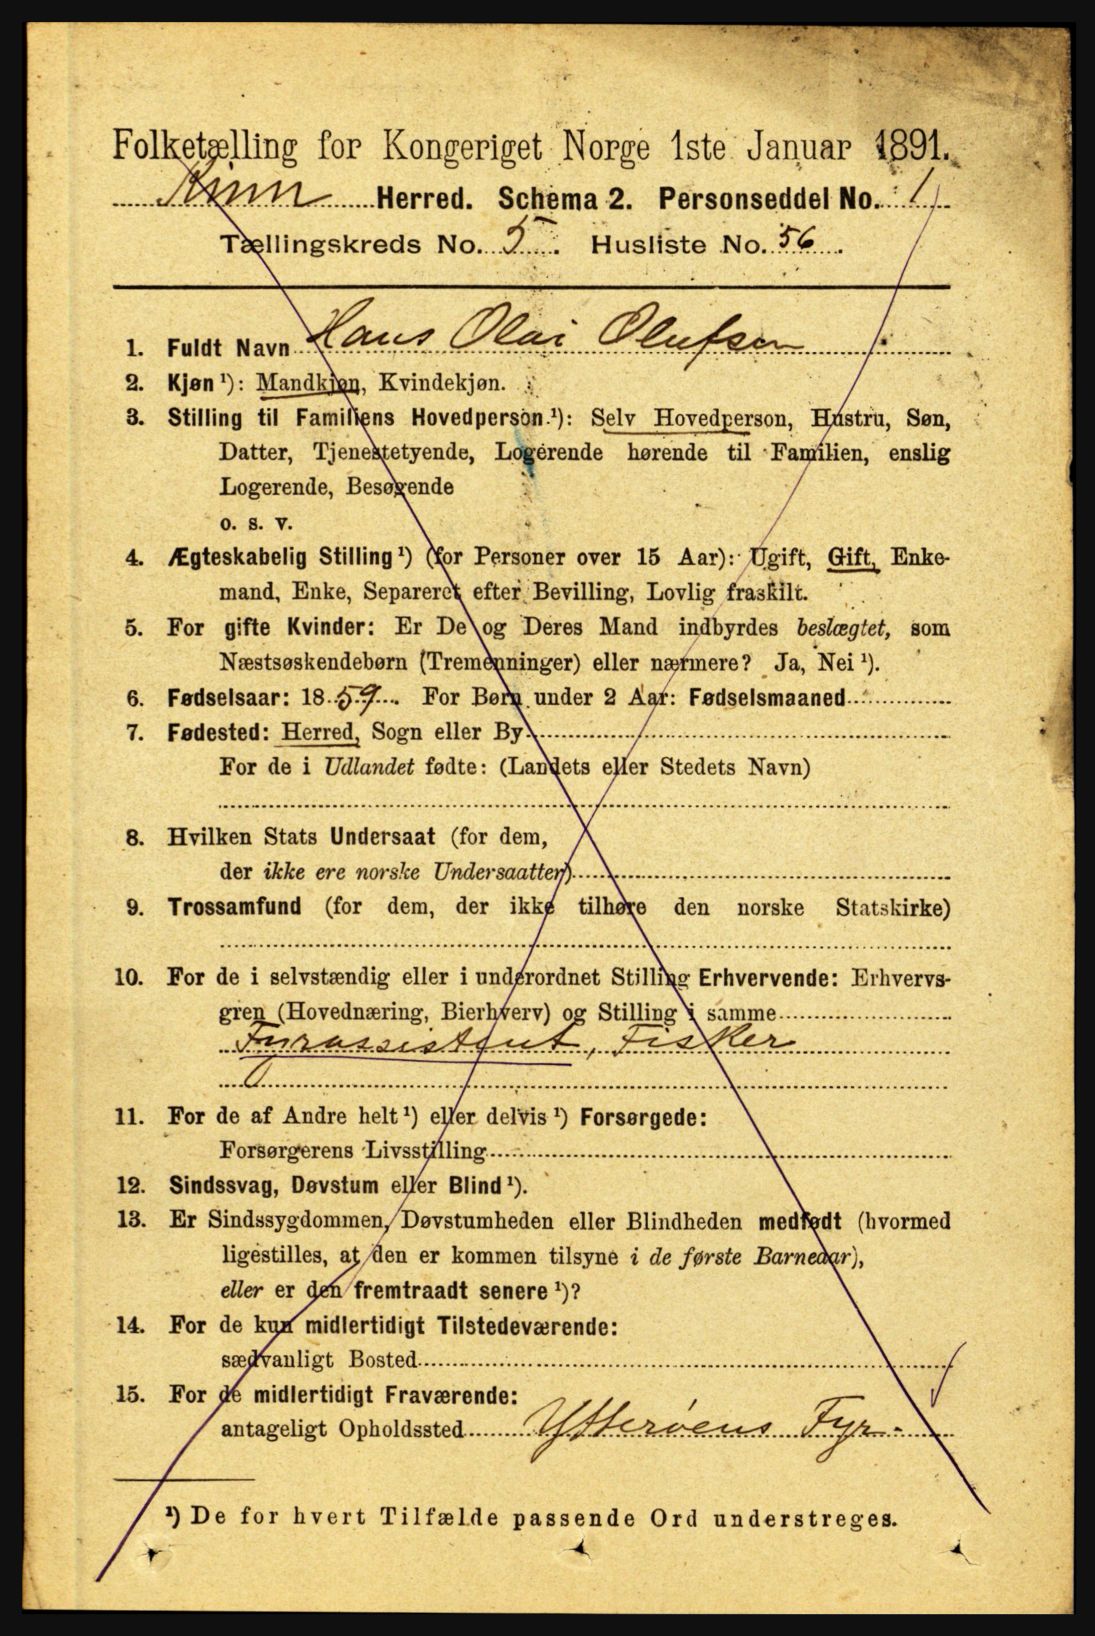 Folketælling for Kongeriget Norge 1ste Januar 1891.
Kinn Herred. Schema 2. Personseddel No. 1
Tællingskreds No. 5. Husliste No. 56.
1. Fuldt Navn Hans Olai Olufsen
2. Kjøn ¹): Mandkjøn, Kvindekjøn.
3. Stilling til Familiens Hovedperson ¹): Selv Hovedperson, Hustru, Søn,
Datter, Tjenestetyende, Logerende hørende til Familien, enslig
Logerende, Besøgende
o. s. v.
4. Ægteskabelig Stilling ¹) (for Personer over 15 Aar): Ugift, Gift, Enke-
mand, Enke, Separeret efter Bevilling, Lovlig fraskilt.
5. For gifte Kvinder: Er De og Deres Mand indbyrdes beslægtet, som
Næstsøskendebørn (Tremenninger) eller nærmere? Ja, Nei ¹).
6. Fødselsaar: 1859. For Børn under 2 Aar: Fødselsmaaned
7. Fødested: Herred, Sogn eller By
For de i Udlandet fødte: (Landets eller Stedets Navn)
8. Hvilken Stats Undersaat (for dem,
der ikke ere norske Undersaatter)
9. Trossamfund (for dem, der ikke tilhøre den norske Statskirke)
10. For de i selvstændig eller i underordnet Stilling Erhvervende: Erhvervs-
gren (Hovednæring, Bierhverv) og Stilling i samme
Fyrassistent, Fisker
11. For de af Andre helt ¹) eller delvis ¹) Forsørgede:
Forsørgerens Livsstilling
12. Sindssvag, Døvstum eller Blind ¹).
13. Er Sindssygdommen, Døvstumheden eller Blindheden medfødt (hvormed
ligestilles, at den er kommen tilsyne i de første Barneaar),
eller er den fremtraadt senere ¹)?
14. For de kun midlertidigt Tilstedeværende:
sædvanligt Bosted
15. For de midlertidigt Fraværende:
antageligt Opholdssted Ytterøens Fyr.
¹) De for hvert Tilfælde passende Ord understreges.